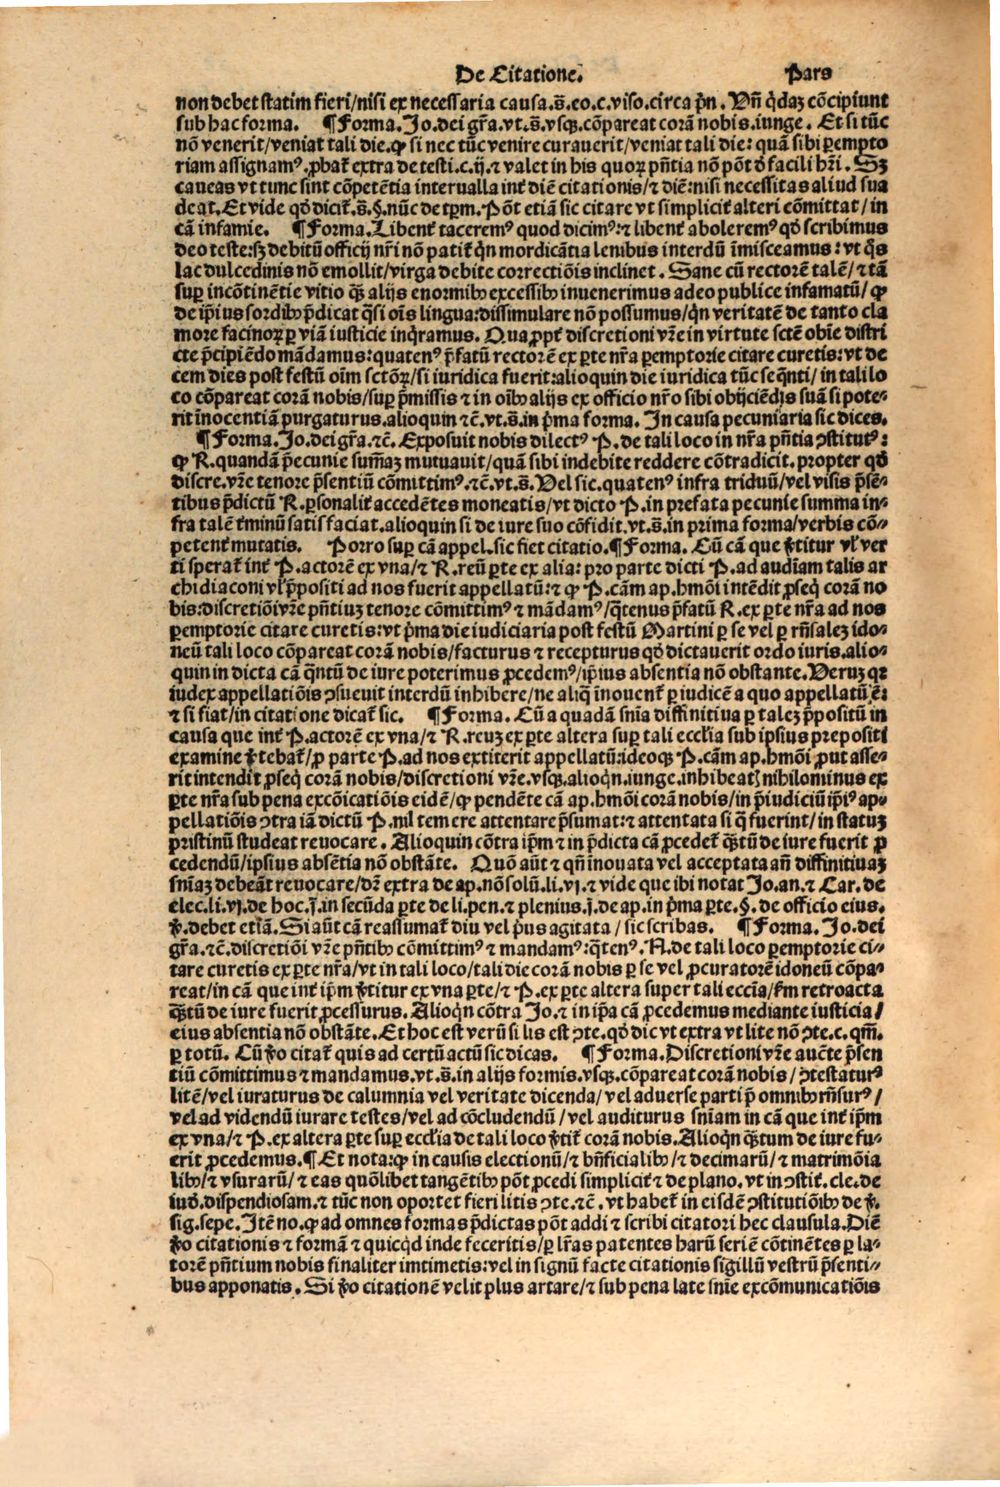 De Citatione. Pars
non debet statim fieri/nisi ex necessaria causa.s̄.eo.c.viso.circa p̄n. Vn̄ q̇daʒ cōcipiunt
sub hac forma. ¶Forma.Jo.dei gr̄a.vt.s̄.vsqʒ.cōpareat corā nobis.iunge. Et si tūc
nō venerit/veniat tali die.ꝙ si nec tūc venire curauerit/veniat tali die: quā sibi ꝑempto
riam assignamꝰ.ꝓbat̄ extra de testi.c.ij.⁊ valet in his quoꝝ pn̄tia nō pōt ð facili hr̄i. Sʒ
caueas vt tunc sint cōpetētia interualla int̄ diē citationis/⁊ diē: nisi necessitas aliud sua
deat. Et vide qð dicit̄.s̄.§.nūc de tp̄m. Pōt etiā sic citare vt simplicit̄ alteri cōmittat/in
cā infamie. ¶Forma.Libent̄ taceremꝰ quod dicimꝰ:⁊ libent̄ aboleremꝰ qð scribimus
deo teste:sʒ debitū officij nr̄i nō patit̄ q̇n mordicātia lenibus interdū īmisceamus: vt q̇s
lac dulcedinis nō emollit/virga debite correctiōis inclinet. Sane cū rectorē talē/⁊ tā
suꝑ incōtinentie vitio qꝫ alijs enormibꝰ excessibꝰ inuenerimus adeo publice infamatū/ꝙ
de ip̄ius sordibꝰ p̄dicat q̄si oīs lingua: dissimulare nō possumus/q̇n veritatē de tanto cla
more facinoꝝ ꝑ viā iusticie inq̇ramus. Quaꝓpt̄ discretioni vr̄e in virtute sctē obīe distri
cte p̄cipiēdo mādamus: quatenꝰ p̄fatū rectorē ex ꝑte nr̄a ꝑemptorie citare curetis: vt de
cem dies post festū oīm sctōꝝ/si iuridica fuerit: alioquin die iuridica tūc seq̄nti/in tali lo
co cōpareat corā nobis/suꝑ p̄missis ⁊ in oībꝰ alijs ex officio nr̄o sibi obijciēdis suā si pote⸗
rit īnocentiā purgaturus.alioquin ⁊c̄.vt.s̄.in p̄ma forma. In causa pecuniaria sic dices.
¶Forma.Jo.dei gr̄a.⁊c̄. Exposuit nobis dilectꝰ P. de tali loco in nr̄a pn̄tia ꝯstitutꝰ:
ꝙ R.quandā p̄cunie sum̄aʒ mutuauit/quā sibi indebite reddere cōtradicit.propter qð
discre.vr̄e tenore p̄sentiū cōmittimꝰ.⁊c̄.vt.s̄. Vel sic.quatenꝰ infra triduū/vel visis p̄sē⸗
tibus p̄dictū R.ꝑsonalit̄ accedētes moneatis/vt dicto P.in prefata pecunie summa in⸗
fra talē t̄minū satisfaciat.alioquin si de iure suo cōfidit.vt.s̄.in prima forma/verbis cō⸗
petent̄ mutatis. Porro suꝑ cā appel.sic fiet citatio.¶Forma. Cū cā que v̄titur vl̓ ver
ti sperat̄ int̄ P.actorē ex vna/⁊ R.reū ꝑte ex alia: pro parte dicti P.ad audiam talis ar
chidiaconi vl̓ p̄positi ad nos fuerit appellatū:⁊ ꝙ P.cām ap.hmōi intēdit ꝓseq̇ corā no
bis: discretiōi vr̄e pn̄tiuʒ tenore cōmittimꝰ ⁊ mādamꝰ/q̄tenus p̄fatū R.ex ꝑte nr̄a ad nos
ꝑemptorie citare curetis: vt p̄ma die iudiciaria post festū Martini ꝑ se vel ꝑ rn̄salez ido⸗
neū tali loco cōpareat corā nobis/facturus ⁊ recepturus qð dictauerit ordo iuris.alio⸗
quin in dicta cā q̄ntū de iure poterimus ꝓcedemꝰ/ip̄ius absentia nō obstante. Veruʒ qꝛ
iudex appellatiōis ꝯsueuit interdū inhibere/ne aliq̇ īnouent̄ ꝑ iudicē a quo appellatū ē:
⁊ si fiat/in citatione dicat̄ sic. ¶Forma. Cū a quadā sn̄ia diffinitiua ꝑ talez p̄positū in
causa que int̄ P.actorē ex vna/⁊ R.reuʒ ex ꝑte altera suꝑ tali ecclīa sub ipsius prepositi
examine v̄tebat̄/ꝓ parte P.ad nos extiterit appellatū: ideoqʒ P.cām ap.hmōi ꝓut asse⸗
rit intendit ꝓseq̇ corā nobis/discretioni vr̄e.vsqʒ.alioq̇n.iunge.inhibeat̄ nihilominus ex
ꝑte nr̄a sub pena excōicatiōis eidē/ꝙ pendēte cā ap.hmōi corā nobis/in p̄iudiciū ip̄iꝰ ap⸗
pellatiōis ꝯtra iā dictū P.nil temere attentare p̄sumat:⁊ attentata si q̄ fuerint/in statuʒ
pristinū studeat reuocare. Alioquin cōtra ip̄m ⁊ in p̄dicta cā ꝓcedet̄ qꝫtū de iure fuerit ꝓ
cedendū/ipsius absētia nō obstāte. Quō aūt ⁊ qn̄ inouata vel acceptata an̄ diffinitiuaʒ
sn̄iaʒ debeāt reuocare/dr̄ extra de ap.nō solū.li.vj.⁊ vide que ibi notat Jo.an.⁊ Car.de
elec.li.vj.de hoc.j̄.in secūda ꝑte de li.pen.⁊ plenius.j̄.de ap.in p̄ma ꝑte.§.de officio eius.
v̄.debet etiā. Si aūt cā reassumat̄ diu vel p̄us agitata/sic scribas. ¶Forma.Jo.dei
gr̄a.⁊c̄.discretiōi vr̄e pn̄tibꝰ cōmittimꝰ ⁊ mandamꝰ: q̄tenꝰ.A.de tali loco ꝑemptorie ci⸗
tare curetis ex ꝑte nr̄a/vt in tali loco/tali die corā nobis ꝑ se vel ꝓcuratorē idoneū cōpa⸗
reat/in cā que int̄ ip̄m v̄titur ex vna ꝑte/⁊ P.ex ꝑte altera super tali ecc̄ia/ẜm retroacta
qꝫtū de iure fuerit ꝓcessurus. Alioq̇n cōtra Jo.⁊ in ip̄a cā ꝓcedemus mediante iusticia/
eius absentia nō obstāte. Et hoc est verū si lis est ꝯte.qð dic vt extra vt lite nō ꝯte.c.qm̄.
ꝑ totū. Cū v̄o citat̄ quis ad certū actū sic dicas. ¶Forma.Discretioni vr̄e aucte p̄sen
tiū cōmittimus ⁊ mandamus.vt.s̄.in alijs formis.vsqʒ.cōpareat corā nobis/ꝯtestaturꝰ
litē/vel iuraturus de calumnia vel veritate dicenda/vel aduerse parti p̄ omnibꝰ rn̄surꝰ/
vel ad videndū iurare testes/vel ad cōcludendū/vel auditurus sn̄iam in cā que int̄ ip̄m
ex vna/⁊ P.ex altera ꝑte suꝑ ecclīa de tali loco v̄tit̄ corā nobis. Alioq̇n qꝫtum de iure fu⸗
erit ꝓcedemus.¶Et nota: ꝙ in causis electionū/⁊ bn̄ficialibꝰ/⁊ decimarū/⁊ matrimōia
libꝰ/⁊ vsurarū/⁊ eas quōlibet tangētibꝰ pōt ꝓcedi simplicit̄ ⁊ de plano.vt in ꝯstit̄.cle.de
iuð.dispendiosam.⁊ tūc non oportet fieri litis ꝯte.⁊c̄.vt habet̄ in eisdē ꝯstitutiōibꝰ de v̄.
sig.sepe. Itē no.ꝙ ad omnes formas p̄dictas pōt addi ⁊ scribi citatori hec clausula. Diē
v̄o citationis ⁊ formā ⁊ quicq̇d inde feceritis/ꝑ lr̄as patentes harū seriē cōtinētes ꝑ la⸗
torē pn̄tium nobis finaliter imtimetis: vel in signū facte citationis sigillū vestrū p̄senti⸗
bus apponatis. Si v̄o citationē velit plus artare/⁊ sub pena late sn̄ie excōmunicatiōis